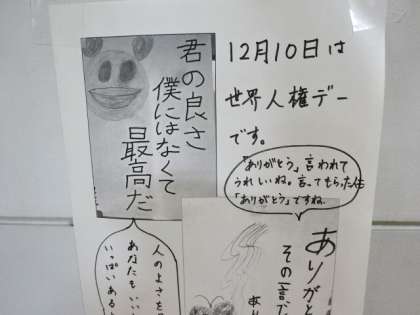 12月10日は
世界人権デー
です。
君の良さ
僕にはなくて
最高だ
「ありがとう」言われて
うれしいね。言ってもらった人も
「ありがとう」ですね。
ありがと
その一言だ
人のよさを
あなたも いい
いっぱい ある